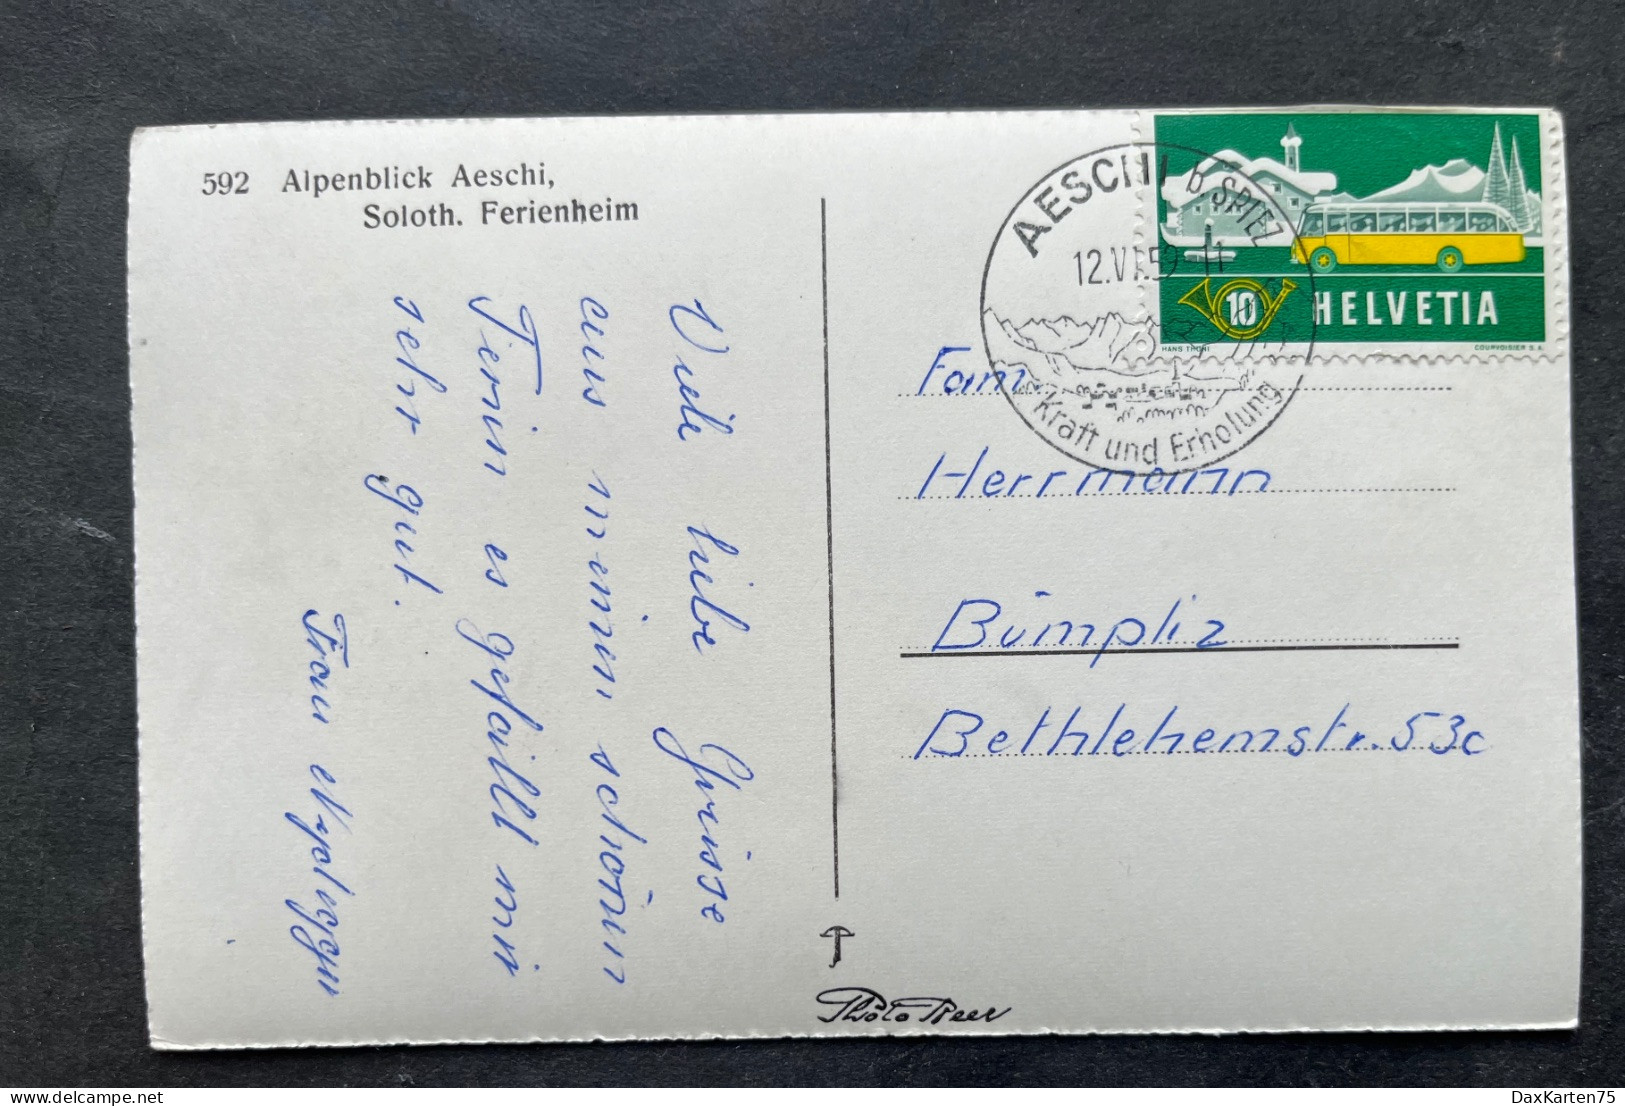 592 Alpenblick Aeschi,
Soloth. Ferienheim
Viele liebe Grüsse
aus meinen schönen
Ferien es gefällt mir
sehr gut.
Frau
AESCHI b. SPIEZ
12.VI.59-11
Kraft und Erholung
10 HELVETIA
HANS THÖNI
COURVOISIER S.A.
Fam
Herrmann
Bümpliz
Bethlehemstr. 53c
Photo Beer
DaxKarten75